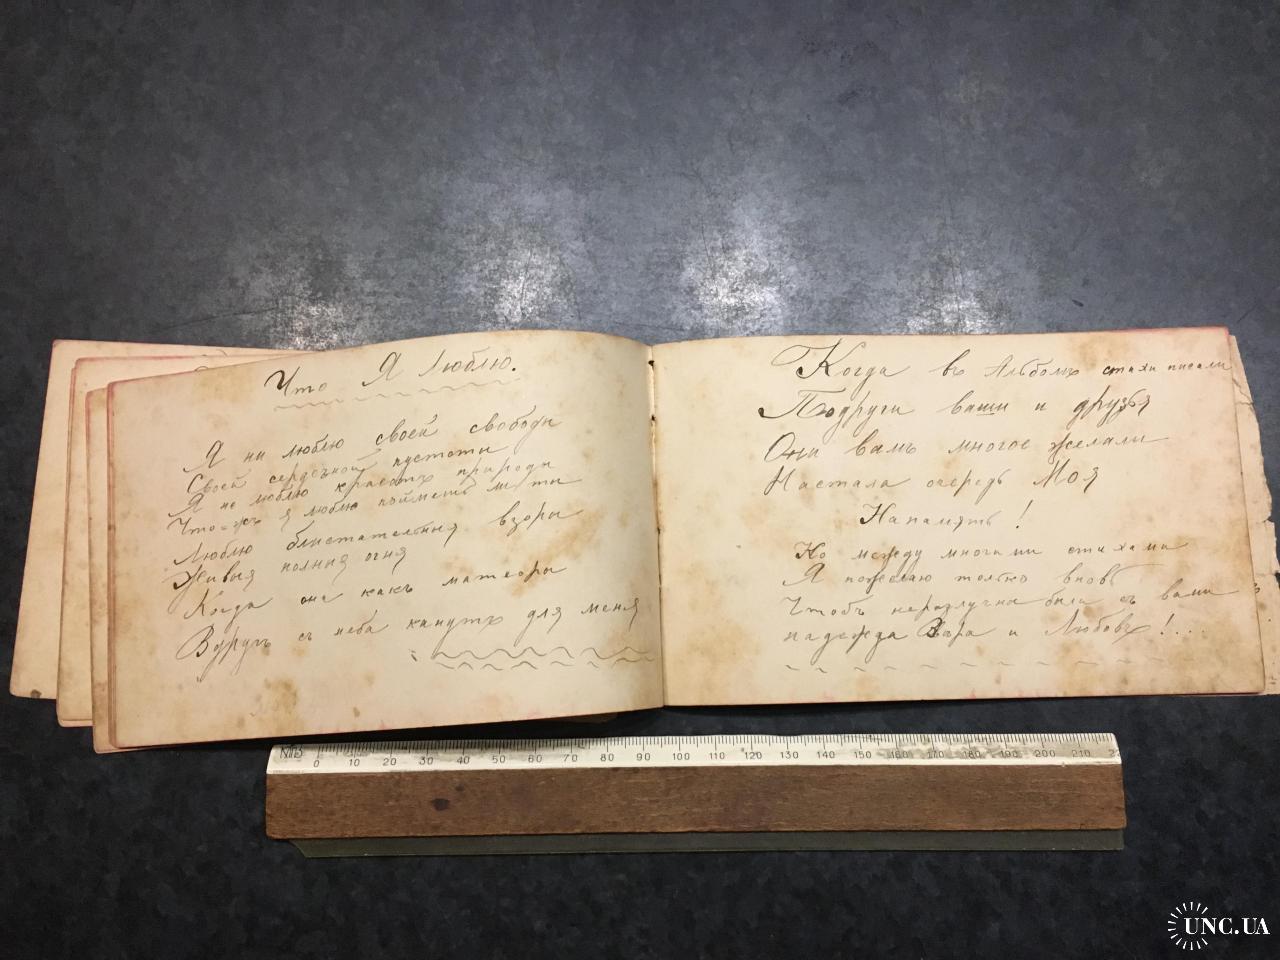 Что Я Люблю.
Я ни люблю своей свободы
Своей сердечной пустоты
Я не люблю красотъ природы
Что-жъ я люблю поймешь ли ты
Люблю блистательныя взоры
Живыя полныя огня
Когда они какъ матеоры
Вдругъ съ неба канутъ для меня
Когда въ Альбомъ стихи писали
Подруги ваши и друзья
Они вамъ многое желали
Настала очередь Моя
На память!
Но между многими стихами
Я пожелаю только вновь
Чтобъ неразлучна была съ вами
надежда Вѣра и Любовъ!...
NTB
0 10 20 30 40 50 60 70 80 90 100 110 120 130 140 150 160 170 180 190 200 210
UNC.UA